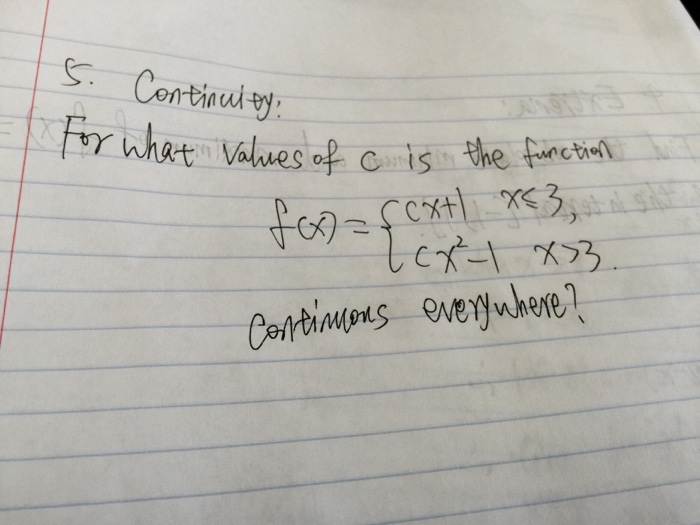 5. Continuity:
For what values of c is the function
f(x) = { cx+1 x≤3,
cx²-1 x>3.
continuous everywhere?